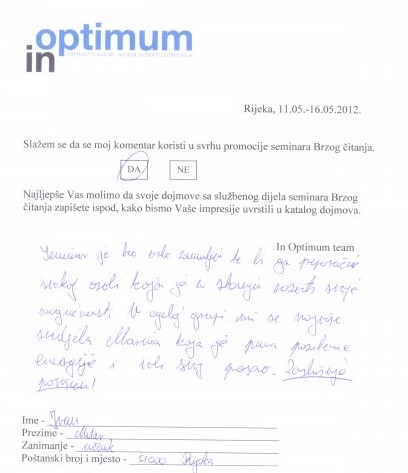 optimum
in
Rijeka, 11.05.-16.05.2012.
Slažem se da se moj komentar koristi u svrhu promocije seminara Brzog čitanja.
DA NE
Najljepše Vas molimo da svoje dojmove sa službenog dijela seminara Brzog
čitanja zapišete ispod, kako bismo Vaše impresije uvrstili u katalog dojmova.
In Optimum team
Seminar je bio vrlo zanimljiv te bi ga preporučio
svakoj osobi koja je u stanju razviti svoje
mogućnosti. U cijeloj grupi mi se najviše
svidjela Marina koja je puna pozitivne
energije i voli svoj posao. Zaslužuje
povišicu!
Ime - Ivan
Prezime -
Zanimanje - učenik
Poštanski broj i mjesto - 51000 Rijeka